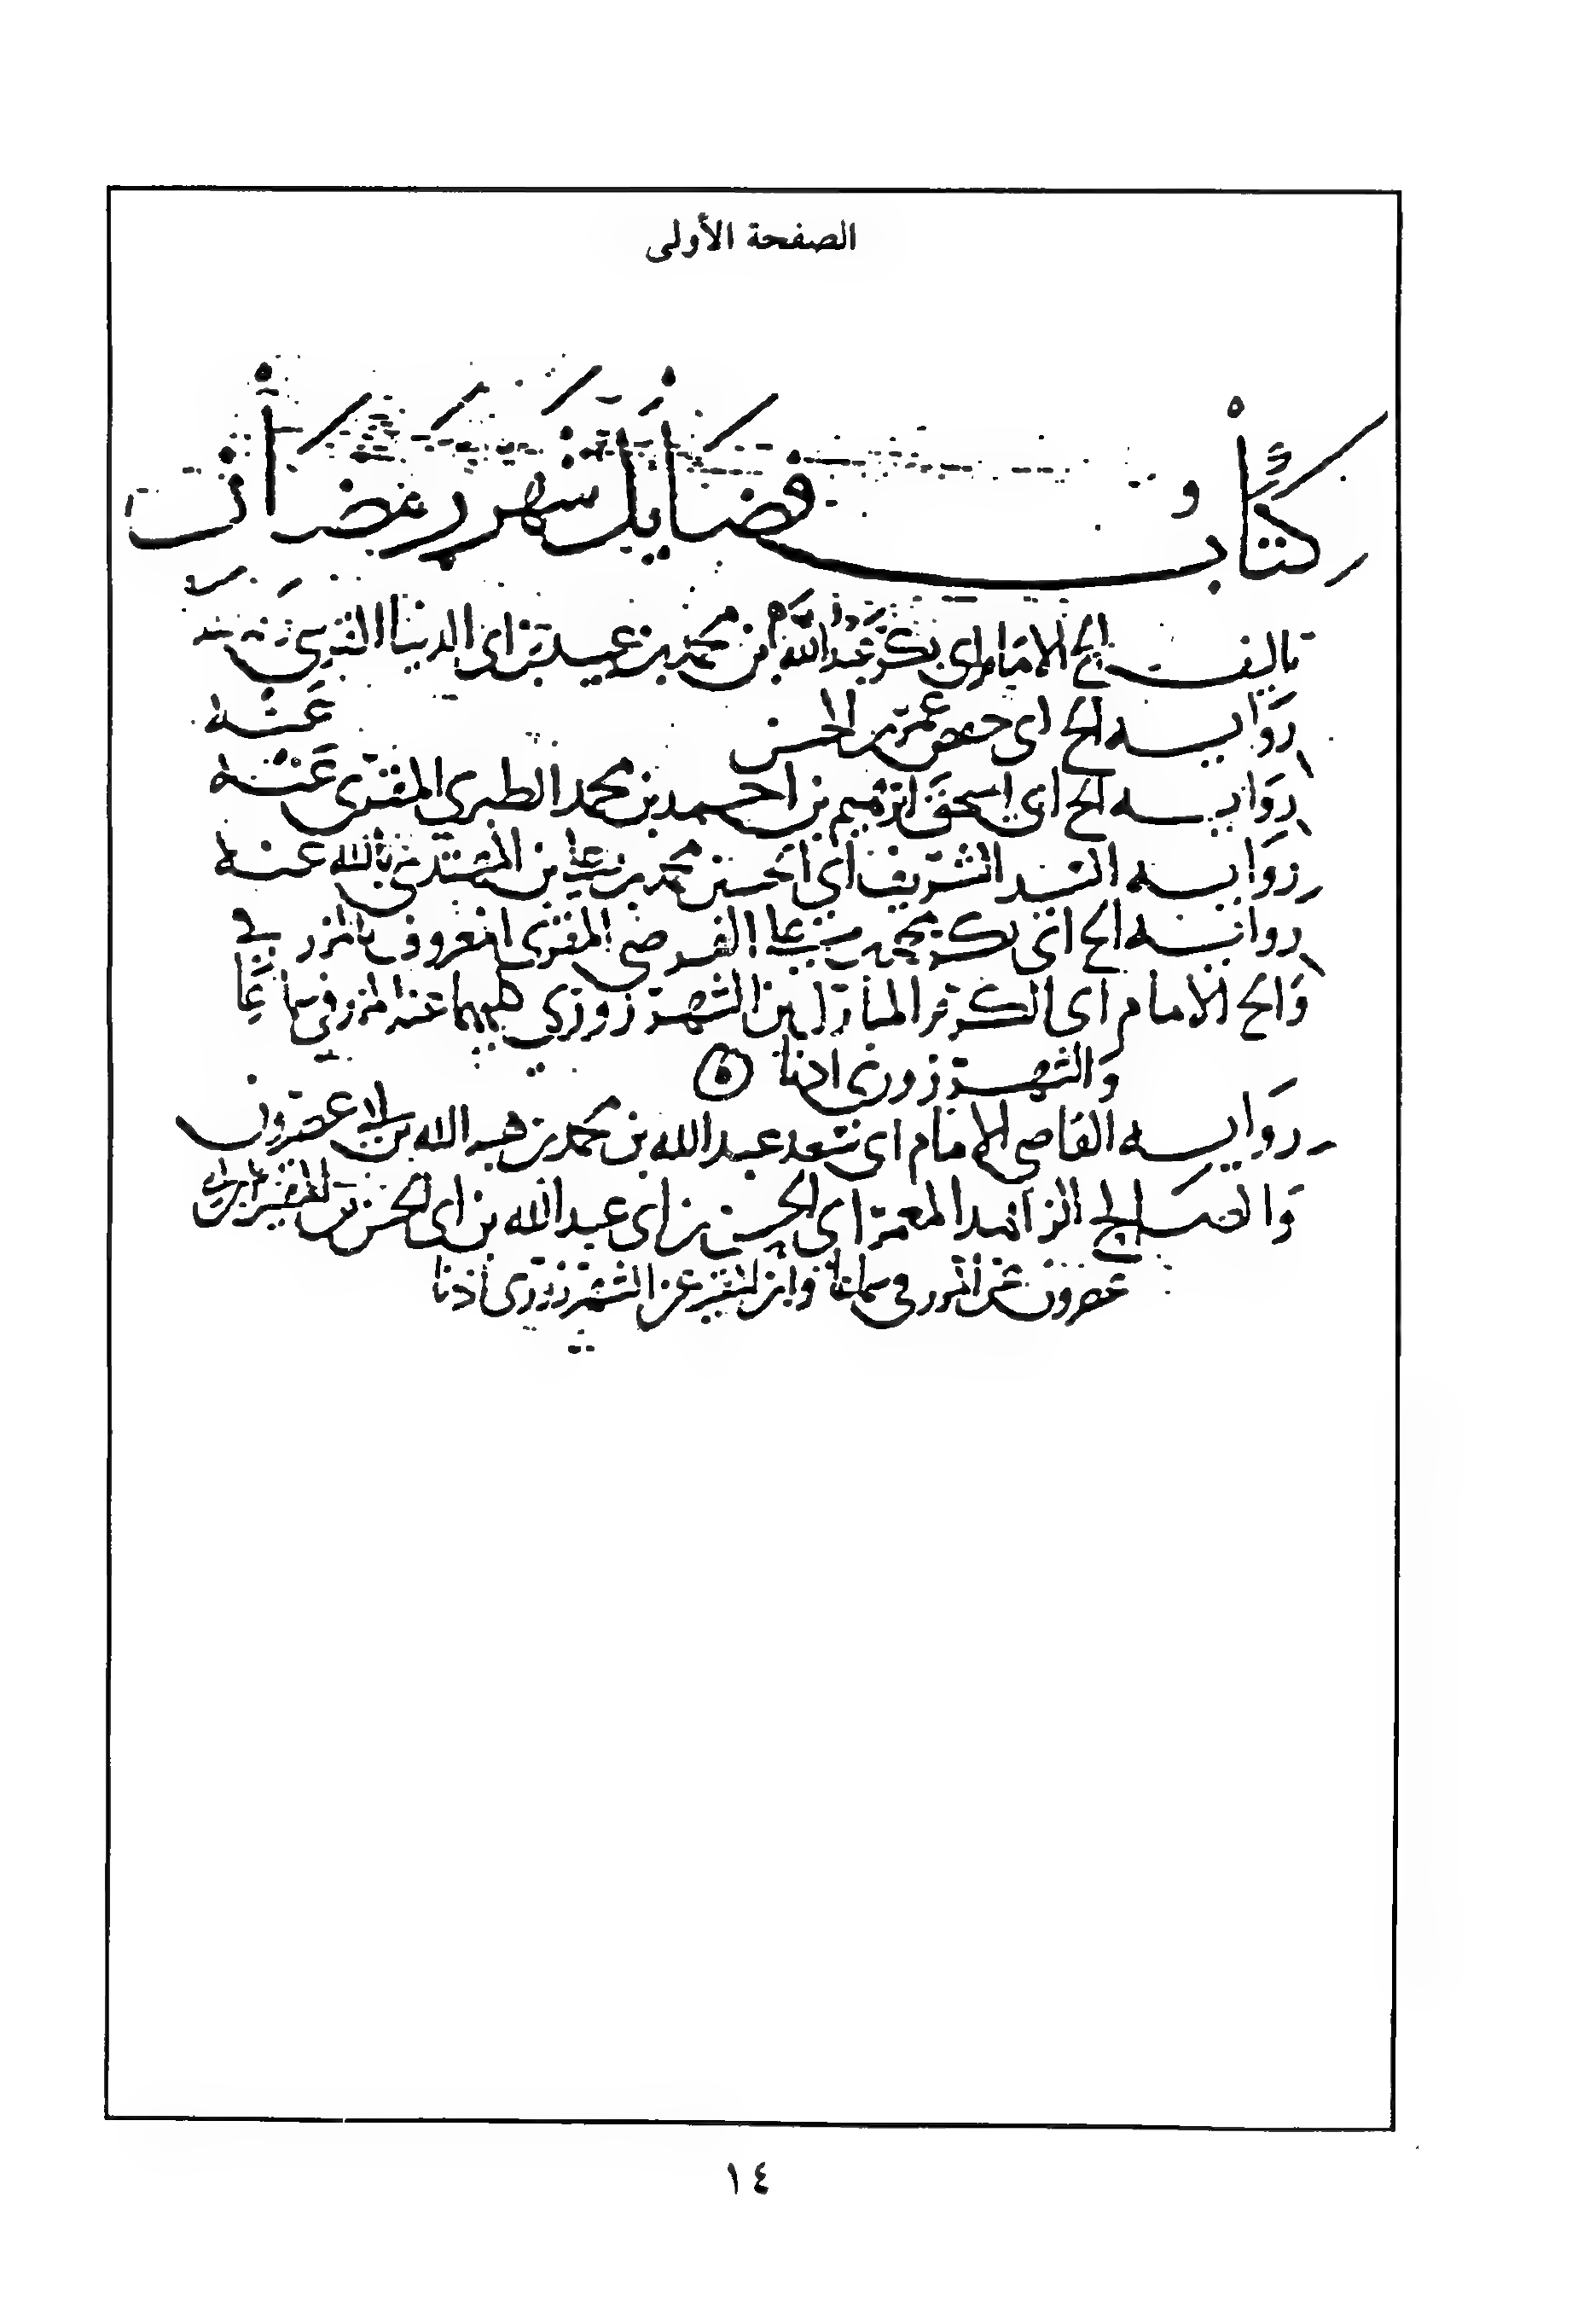 الصفحة الأولى
كتاب فضايل شهر رمضان
تاليف الامام ابى بكر عبد الله بن محمد بن عبيد بن ابى الدنيا القرشى
روايـه ابى حفص عمر بن الحسن عنه
روايـه ابى اسحق ابرهيم بن احمد بن محمد الطبرى المقرى عنه
روايـه السيد الشريف ابى الحسين محمد بن على بن المهتدى بالله عنه
روايـه ابى بكر محمد على الفرضى المقرى المعروف بالمزرفى
والامام ابى الكرم المبارك بن الشهرزورى كليهما عنه المزرفى سماعا
والشهرزورى اذنا
روايـه القاضى الامام ابى سعد عبد الله بن محمد بن هبه الله بن ابى عصرون
والزاهد المعمر ابى الحسن بن ابى عبد الله بن ابى الحسن بن المقير
عصرون عن المزرفى سماعا وابن المقير عن الشهرزورى اذنا
١٤